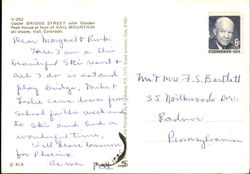 V-252
Upper BRIDGE STREET with Golden
Peak House at foot of VAIL MOUNTAIN
ski slopes, Vail, Colorado.
Dear Margaret & Bart,
Here I am in this
beautiful Ski resort &
all I do is eat and
play bridge. Mike &
Leslie came down from
School for this weekend
to ski and had a
wonderful time.
Will leave tomorrow
for Phoenix.
As ever
6c
EISENHOWER·USA
Mr & Mrs F.S. Bartlett
35 Northwoods Dr.
Radnor
Pennsylvania